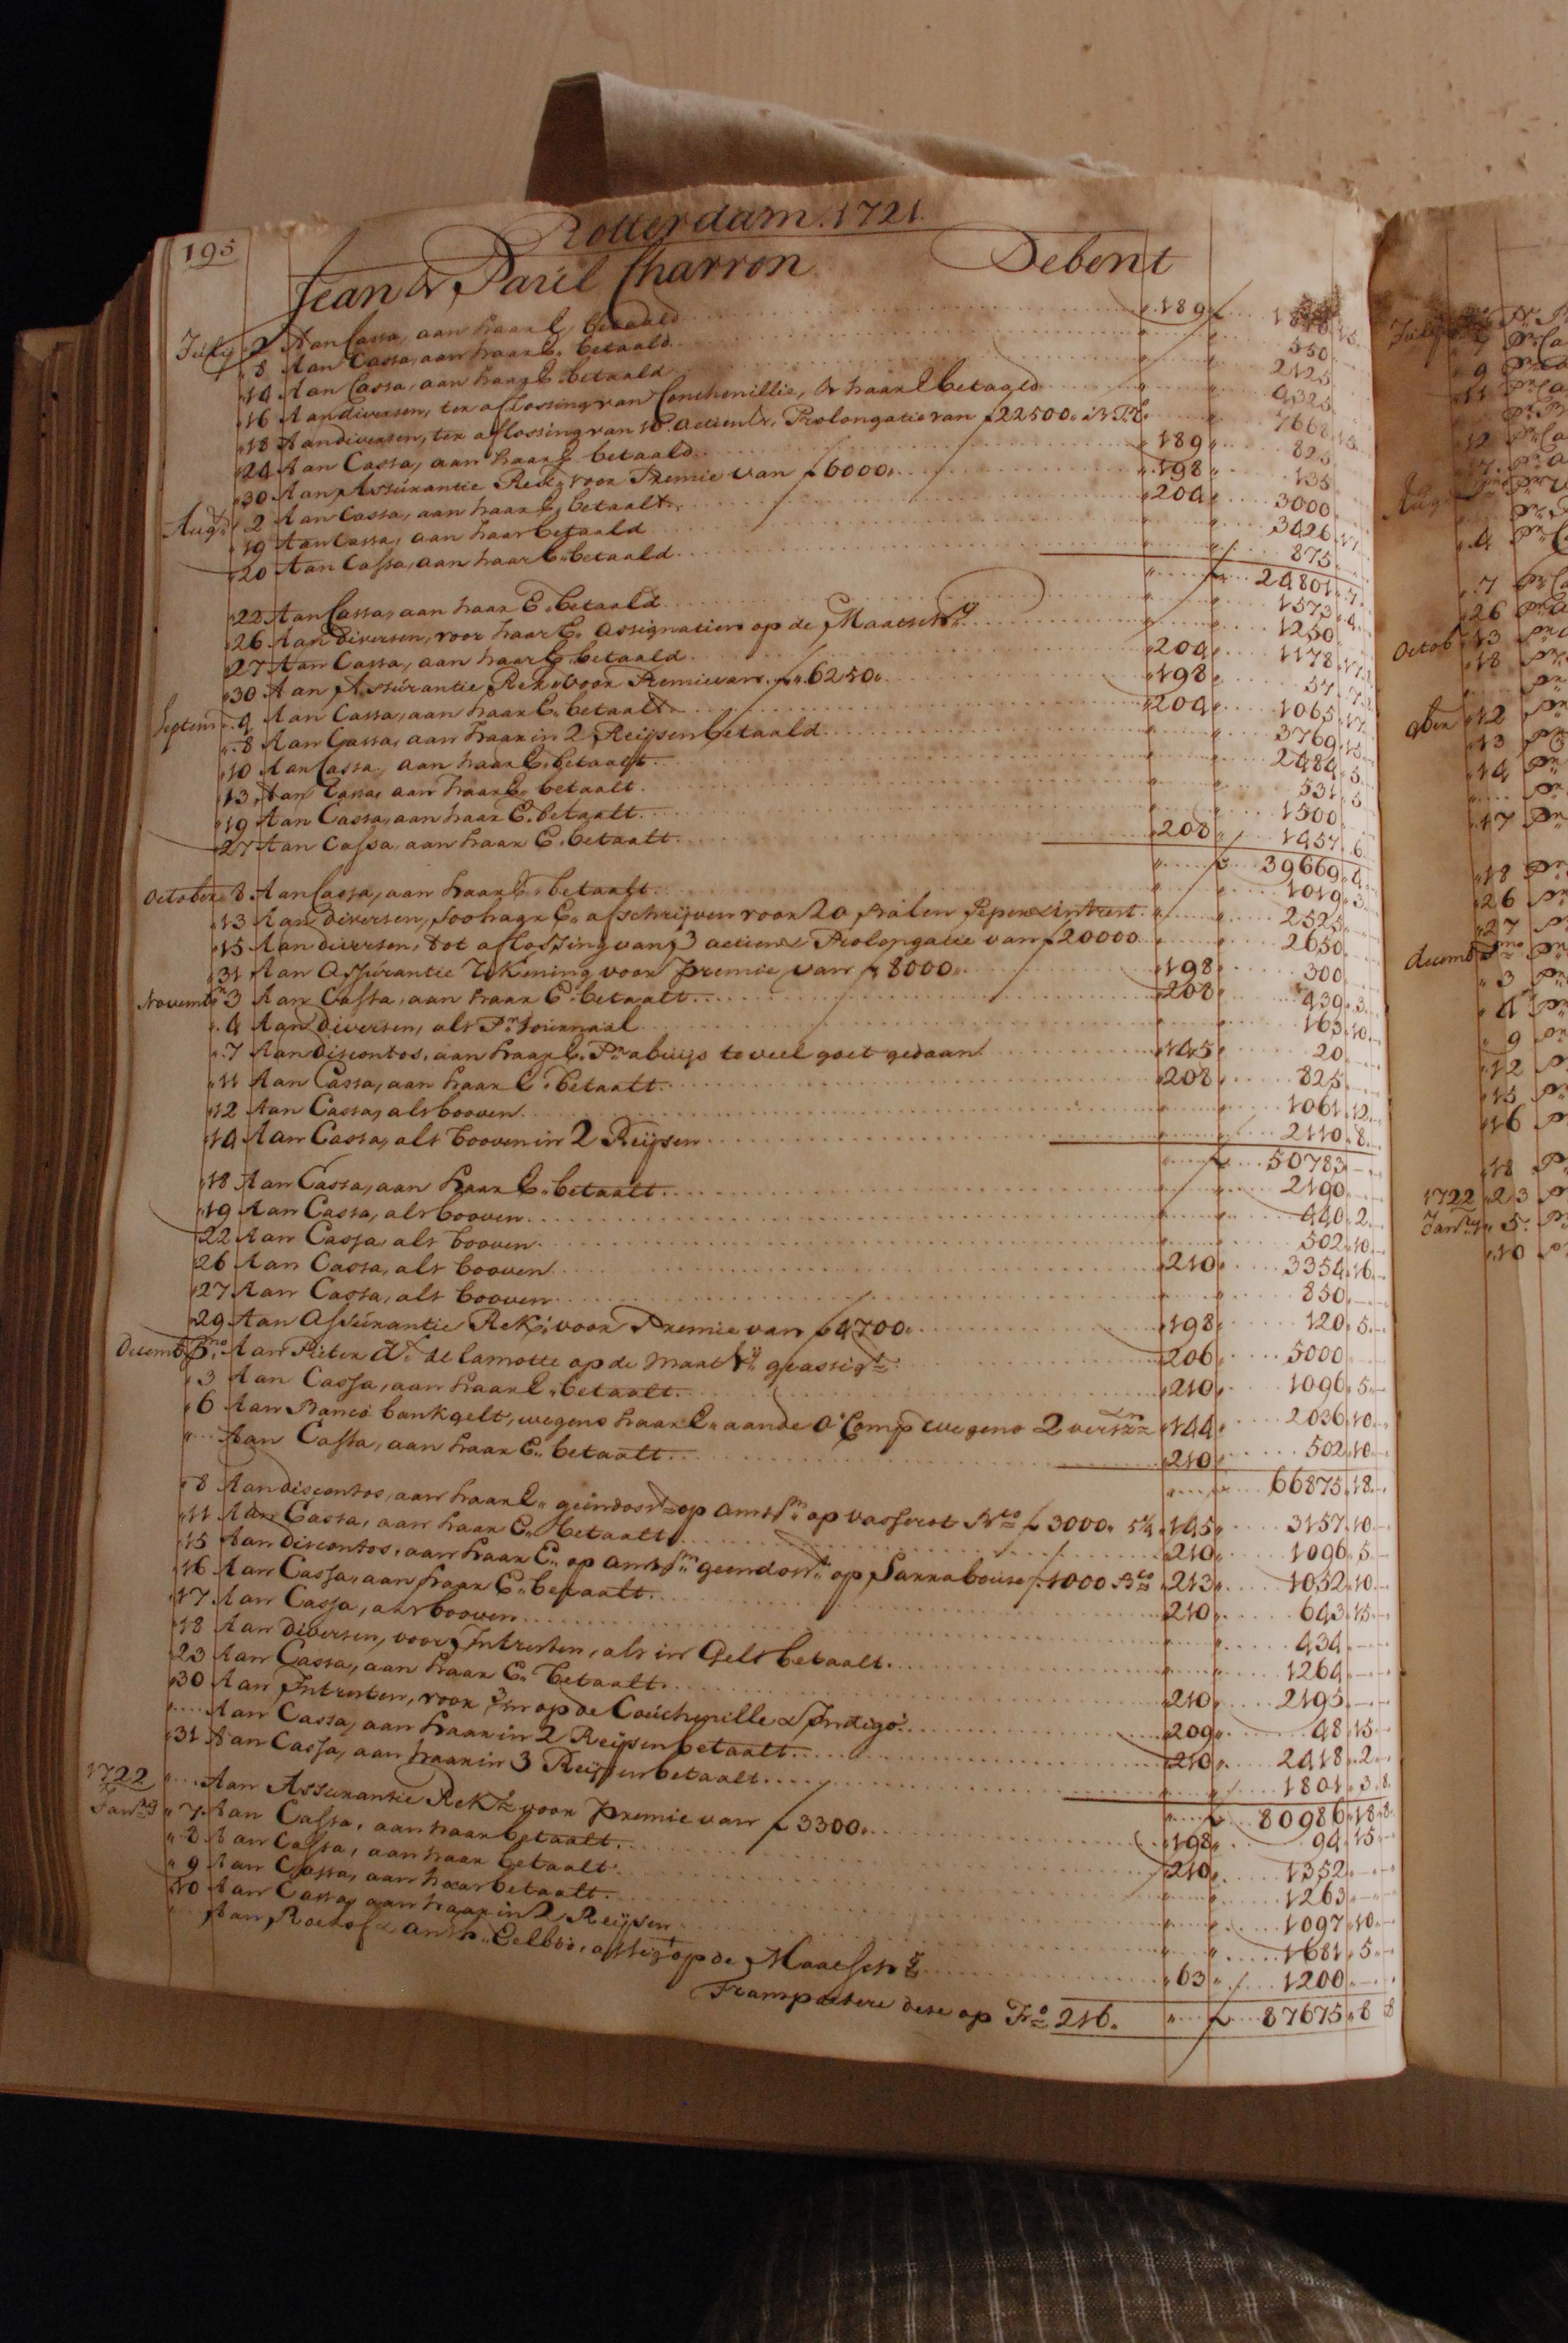 195
Rotterdam. 1721.
Jean & Paul Charron Debent
July 2 Aan Cassa, aan haar E. betaald 189 f
8 Aan Cassa, aan haar E. betaald 550
14 Aan Cassa, aan haar E. betaald 2125
16 Aan diversen, ter aflossing van Conchenillie, & haar E betaald 4325
18 Aan diversen, ter aflossing van 10 actien &, Prolongatie van f 22500. 7668
24 Aan Cassa, aan haar E. betaald 189 825
30 Aan Assurantie Rek. voor Premie van f 6000. 198 135
Augs 2 Aan Cassa, aan haar E. betaalt 204 3000
19 Aan Cassa, aan haar betaald 3426
20 Aan Cassa, aan haar E. betaald 875
f 24801. 7.
22 Aan Cassa, aan haar E. betaald 1573. 4.
26 Aan diversen, voor haar E. assignatien op de Maatsch. 1250
27 Aan Cassa, aan haar E. betaald 204 1178. 17.
30 Aan Assurantie Rek. voor Premie van f 6250. 198 57. 7.
Septem 4 Aan Cassa, aan haar E. betaalt 204 1065. 17.
8 Aan Cassa, aan haar in 2 Reijsen betaald 3769. 15.
10 Aan Cassa, aan haar E. betaalt 2484. 5.
13 Aan Cassa, aan haar E. betaalt 531. 5
19 Aan Cassa, aan haar E. betaalt 1500
27 Aan Cassa, aan haar E. betaalt 208 1457. 6.
f 39669. 4.
October 8 Aan Cassa, aan haar E. betaalt 1019. 3.
13 Aan diversen, soo haar E. afschrijven voor 20 Balen Peper & intrest 2525
15 Aan diversen, tot aflossing van 3 actien & Prolongatie van f 20000 2650
31 Aan Assurantie Rekening voor Premie van f 8000. 198 300
Novemb 3 Aan Cassa, aan haar E. betaalt 208 439. 3.
4 Aan diversen, als Pr Journaal 163. 10.
7 Aan discontos, aan haar E. Pr abuijs te veel goet gedaan 145 20
11 Aan Cassa, aan haar E. betaalt 208 825
12 Aan Cassa, als booven 1061. 12.
14 Aan Cassa, als booven in 2 Reijsen 2110. 8.
f 50783
18 Aan Cassa, aan haar E. betaalt 2190
19 Aan Cassa, als booven 440. 2.
22 Aan Cassa, als booven 502. 10.
26 Aan Cassa, als booven 210 3354. 16.
27 Aan Cassa, als booven 850
29 Aan Assurantie Rek: voor Premie van f 4700. 198 120. 5.
Decemb Pmo Aan Pieter de la motte op de Maat geassigt 206 5000
3 Aan Cassa, aan haar E. betaalt 210 1096. 5.
6 Aan Banco bank gelt, wegens haar E. aan de O: Comp wegens 2 144 2036. 10.
Aan Cassa, aan haar E. betaalt 210 502. 10.
66875. 18.
8 Aan discontos, aan haar E. geindost op Amst op vasserot Bco f 3000. 5¼ 145 3157. 10.
11 Aan Cassa, aan haar E. betaalt 210 1096. 5
15 Aan discontos, aan haar E. op Amst geendost op Sarrabouse f 1000 Bco 213 1052. 10
16 Aan Cassa, aan haar E. betaalt 210 643. 15
17 Aan Cassa, als booven 434
18 Aan diversen, voor Intresten, als in Gelt betaalt. 1264
23 Aan Cassa, aan haar E. betaalt. 210 2195
30 Aan Intresten, voor op de Couchenille & Indigo. 209 48. 15
Aan Cassa, aan haar in 2 Reijsen betaalt. 210 2418. 2
31 Aan Cassa, aan haar in 3 Reijsen betaalt 1801. 3. 8.
80986. 18. 8.
1722 Aan Assurantie Rek. voor Premie van f 3300. 198 94. 15
Janry 7 Aan Cassa, aan haar betaalt. 210 1352
8 Aan Cassa, aan haar betaalt. 1263
9 Aan Cassa, aan haar betaalt. 1097. 10.
10 Aan Cassa, aan haar in 2 Reijsen 1681. 5
Aan Roelof & Anth. Eelbo, assigt op de Maatsch 63 1200
Transportere dese op Fo 216. f 87675. 8 8
July
9
11
12
17
Aug
4
7
26
Octob 13
18
9ber 12
13
14
17
18
26
27
decemb
3
4
9
12
15
16
18
1722 23
Janry 5
10